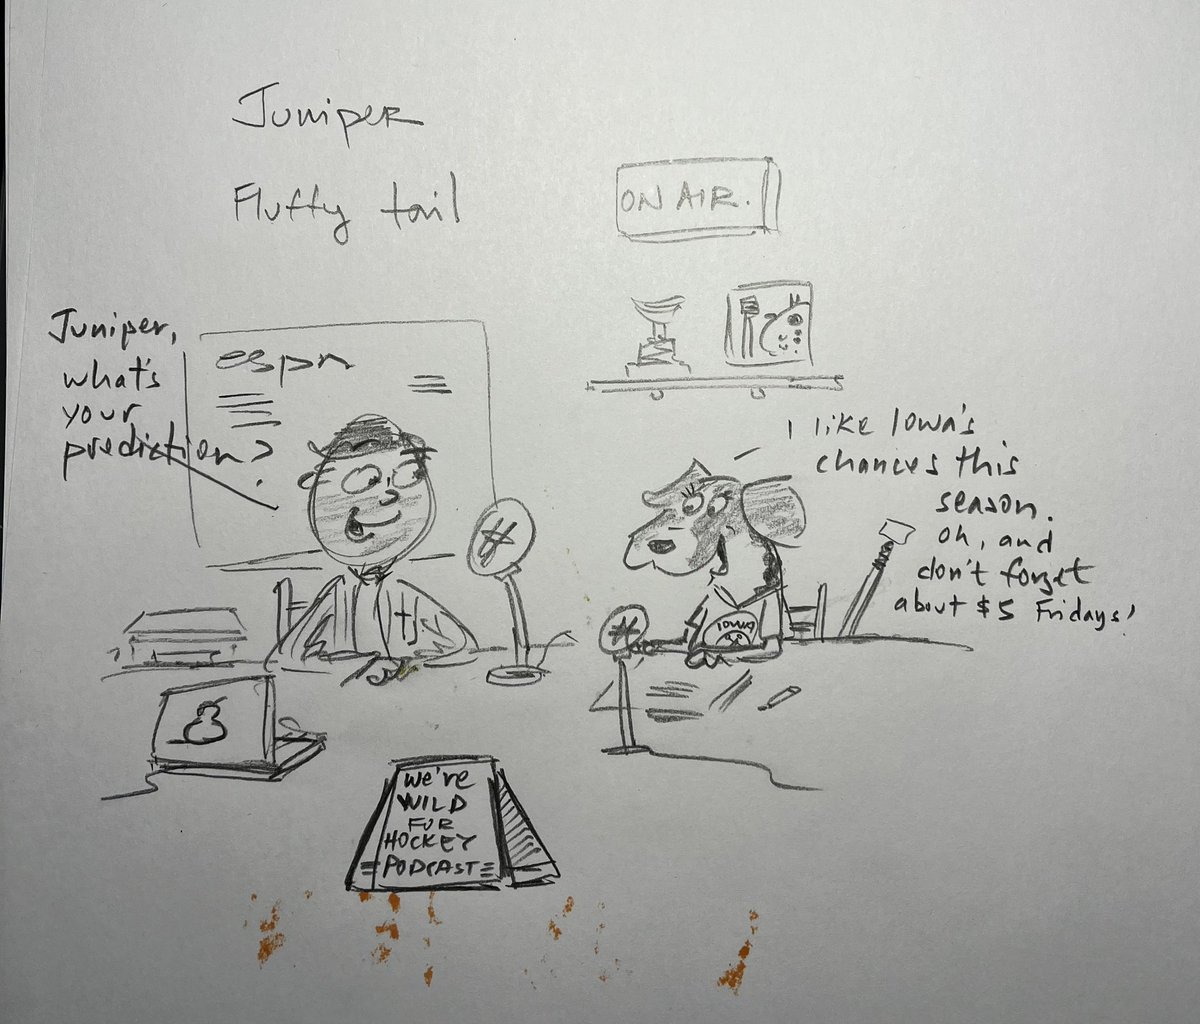 Juniper
Fluffy tail
ON AIR.
Juniper,
what's
your
prediction?
espn
I like Iowa's
chances this
season.
Oh, and
don't forget
about $5 Fridays!
IOWA
We're
WILD
FUR
HOCKEY
PODCAST